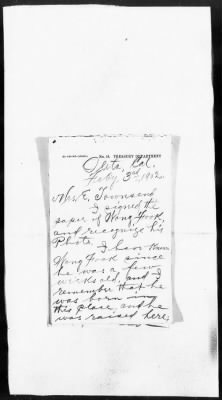 No. 15. TREASURY DEPARTMENT
Cal.
Feb'y 3rd 1912.
Mr. E. Townsend
I signed the
paper of Wong Fook,
and recognize his
Photo. I have known
Wong Fook since
he was a few
weeks old, and I
remember that he
was born in
this place, and he
was raised here.